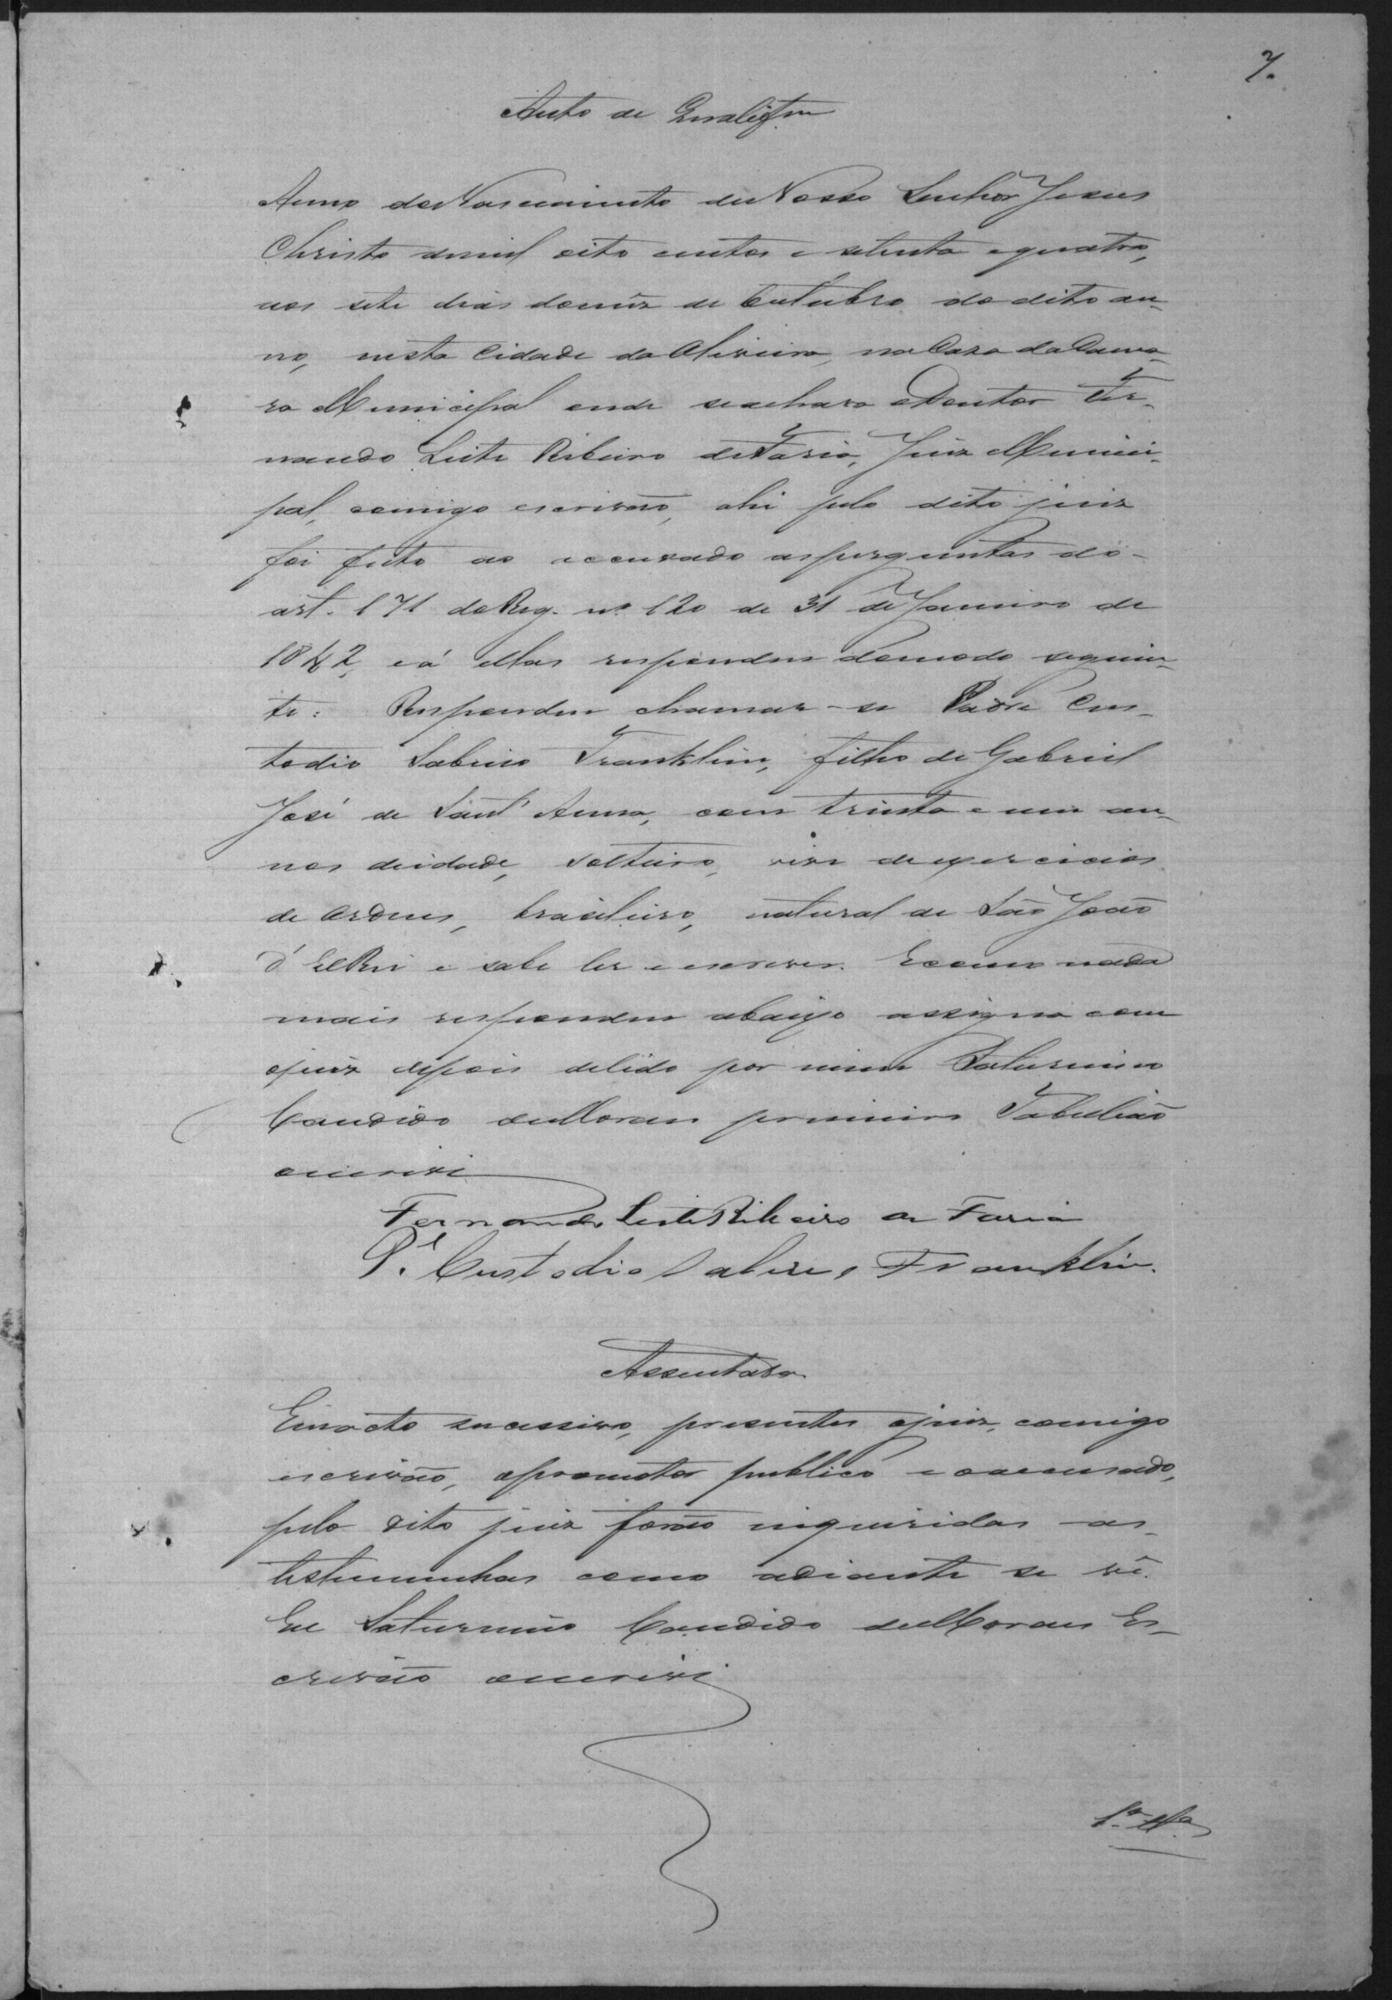 7.
Auto de Qualifçam
Anno do Nascimento de Nosso Senhor Jesus
Christo de mil oito centos e setenta e quatro,
aos sete dias do mez de Outubro do dito an-
no, nesta Cidade da Oliveira, na Caza da Cama-
ra Municipal onde se achava o Doutor Fer-
nando Leite Ribeiro de Faria, Juiz Munici-
pal, comigo escrivão, ahi pelo dito juiz
foi feito ao accusado as perguntas do
art. 171 do Reg. nº 120 de 31 de Janeiro de
1842, e á ellas respondeu do modo seguin-
te: Respondeu chamar-se Padre Cus-
todio Sabino Franklin, filho de Gabriel
José de Sant'Anna, com trinta e um an-
nos de idade, solteiro, vive de exercicios
de Ordens, brasileiro, natural de São João
d'El Rei e sabe ler e escrever. E como nada
mais respondeu abaixo assigna com
o juiz depois de lido por mim Saturnino
Candido de Moraes primeiro Tabelião
o escrivi
Fernando Leite Ribeiro de Faria
P.e Custodio Sabino Franklin.
Assentada
Em acto sucessivo, presentes o juiz, comigo
escrivão, o promotor publico e o accusado,
pelo dito juiz forão inquiridas as
testemunhas como adiante se vê.
Eu Saturnino Candido de Moraes Es-
crivão o escrivi
1.ª Tª